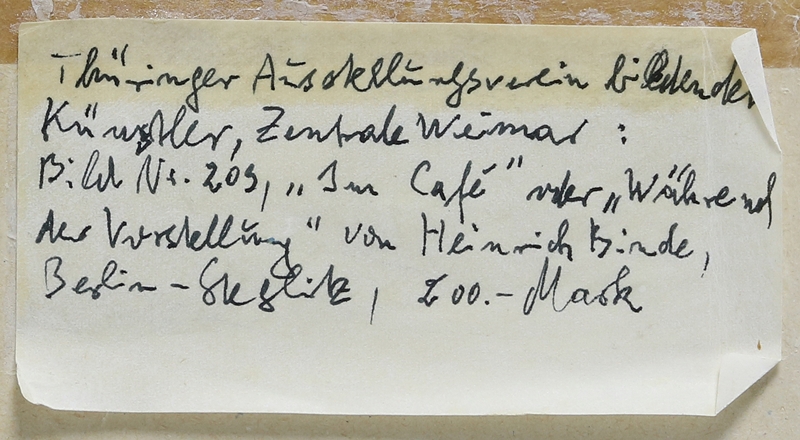 Thüringer Ausstellungsverein bildender
Künstler, Zentrale Weimar :
Bild Nr. 209, „Im Café" oder „Während
der Vorstellung" von Heinrich Binde,
Berlin-Steglitz, 200.- Mark